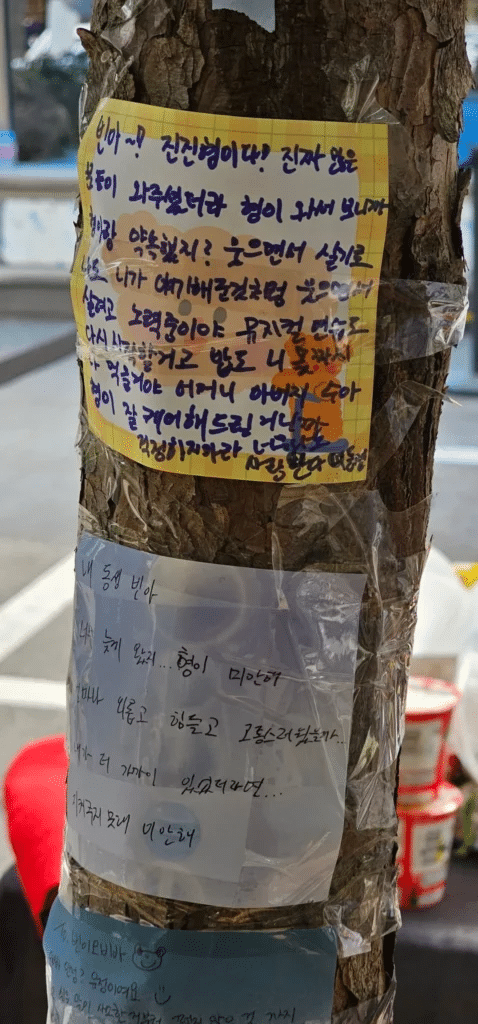 빈아~!? 진진형이다! 진짜 많은
분들이 와주셨더라 형이 와서 보니까
약속했지? 웃으면서 살기로
나도 니가 얘기해준것처럼 웃으면서
살려고 노력중이야 뮤지컬 연습도
다시 시작할거고 밥도 니 몫까지
다 먹을거야 어머니 아버지 수아
형이 잘 케어해드릴거니까
걱정하지마라
사랑한다
내 동생 빈아
늦게 왔지... 형이 미안해
얼마나 외롭고 힘들고 고통스러웠을까..
내가 더 가까이 있었더라면...
지켜주지 못해 미안해
빈이오빠
안녕? 이에요